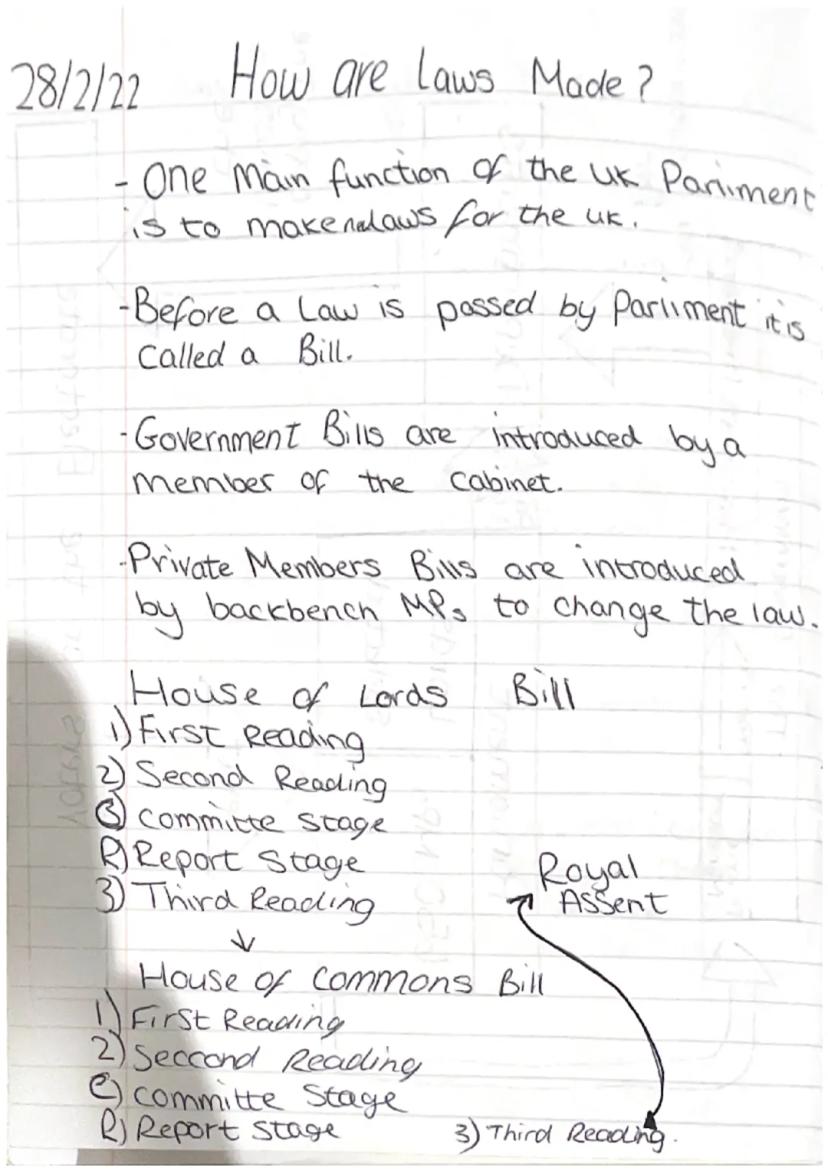 28/2/22 How are Laws Made?
- One Main function of the UK Parliment
is to make laws for the UK.
- Before a Law is passed by Parliment it is
called a Bill.
- Government Bills are introduced by a
member of the cabinet.
- Private Members Bills are introduced
by backbench MPs to change the law.
House of Lords Bill
1) First Reading
2) Second Reading
C) Committe Stage
R) Report Stage
3) Third Reading
Royal
Assent
↓
House of Commons Bill
1) First Reading
2) Seccond Reading
C) Committe Stage
R) Report Stage 3) Third Reading.